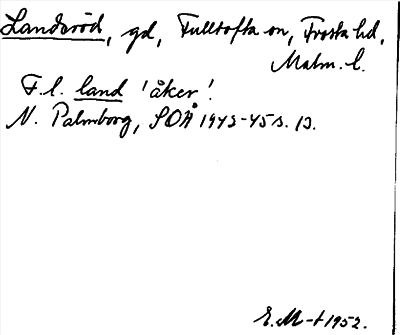 Landsröd, gd, Fulltofta sn, Frosta hd,
Malm. l.
F.l. land 'åker'.
N. Palmborg, SOÅ 1943-45 s. 13.
E.M-t 1952.